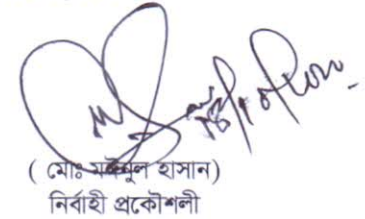 ( মোঃ মঈনুল হাসান)
নির্বাহী প্রকৌশলী